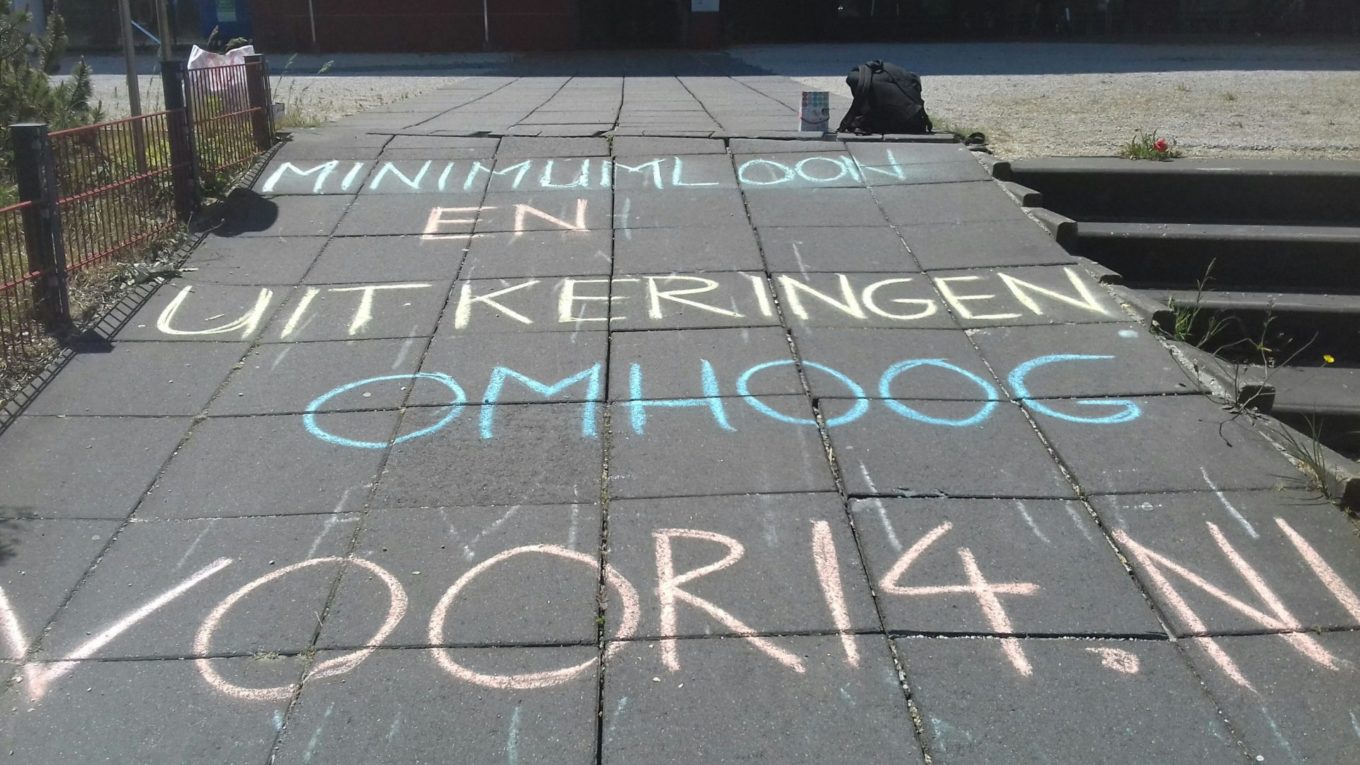 MINIMUMLOON
EN
UITKERINGEN
OMHOOG
VOOR14.N